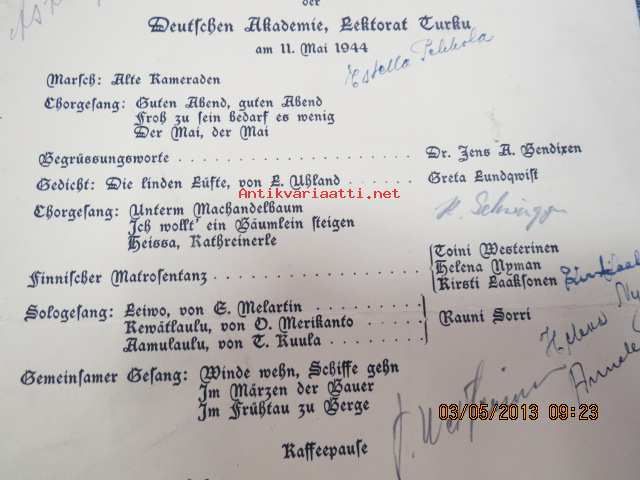 der
Deutschen Akademie, Lektorat Turku
am 11. Mai 1944
Estella Pekkola
Marsch: Alte Kameraden
Chorgesang: Guten Abend, guten Abend
Froh zu sein bedarf es wenig
Der Mai, der Mai
Begrüssungsworte . . . . . . . . . . . . . . . . . . . . Dr. Jens A. Bendixen
Gedicht: Die linden Lüfte, von L. Uhland . . . . . . . . Greta Lundqwist
Antikvariaatti.net
Chorgesang: Unterm Machandelbaum
Ich wollt' ein Bäumlein steigen
Heissa, Kathreinerle
Toini Westerinen
Finnischer Matrosentanz . . . . . . . . . . . . . . . . Helena Nyman
Kirsti Laaksonen
Sologesang: Leiwo, von E. Melartin . . . . . . . .
Kewätlaulu, von O. Merikanto . . . . Rauni Sorri
Aamulaulu, von T. Kuula . . . . . .
Helena
Gemeinsamer Gesang: Winde wehn, Schiffe gehn
Im Märzen der Bauer
Im Frühtau zu Berge
03/05/2013 09:23
Kaffeepause